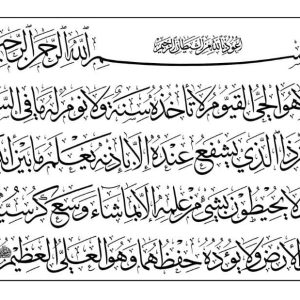 أعوذ بالله من الشيطان الرجيم
سم الله الرحمن الرحيم
لا هو الحي القيوم لا تأخذه سنة ولا نوم له ما في الس
ذا الذي يشفع عنده إلا بإذنه يعلم ما بين أيد
لا يحيطون بشيء من علمه إلا بما شاء وسع كرسي
الأرض ولا يؤده حفظهما وهو العلي العظيم